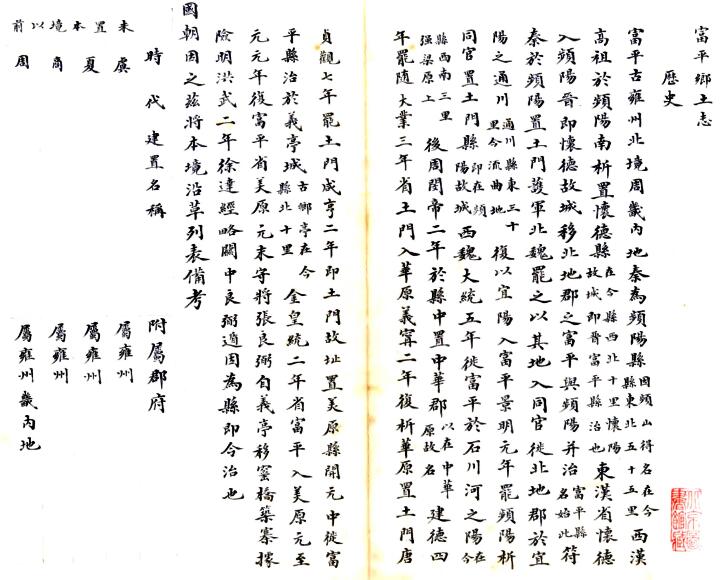 富平鄉土志
歷史
富平古雍州北境周畿內地秦為頻陽縣因頻山得名在今縣東北五十五里西漢
高祖於頻陽南析置懷德縣在今縣西北十里懷陽故城即晉富平縣治也東漢省懷德
入頻陽晉即懷德故城移北地郡之富平與頻陽并治富平縣名始此符
秦於頻陽置土門護軍北魏罷之以其地入同官徙北地郡於宜
陽之通川通川縣東三十里今流曲地復以宜陽入富平景明元年罷頻陽析
同官置土門縣即在頻陽故城西魏大統五年徙富平於石川河之陽今在
縣西南三里强梁原上後周閔帝二年於縣中置中華郡以在中華原故名建德四
年罷隨大業三年省土門入華原義寧二年復析華原置土門唐
貞觀七年罷土門咸亨二年即土門故址置美原縣開元中徙富
平縣治於義亭城古鄉亭在今縣北十里金皇統二年省富平入美原元至
元元年復富平省美原元末守將張良弼自義亭移窰橋築寨據
險明洪武二年徐達經略關中良弼遁因為縣即今治也
國朝因之茲將本境沿革列表備考
時代 建置名稱 附屬郡府
未置本境以前
虞 屬雍州
夏 屬雍州
商 屬雍州
周 屬雍州畿內地